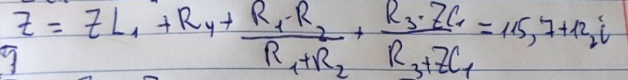 Z = ZL₁ + R₄ + (R₁·R₂)/(R₁+R₂) + (R₃·ZC₁)/(R₃+ZC₁) = 115,7+12,2i